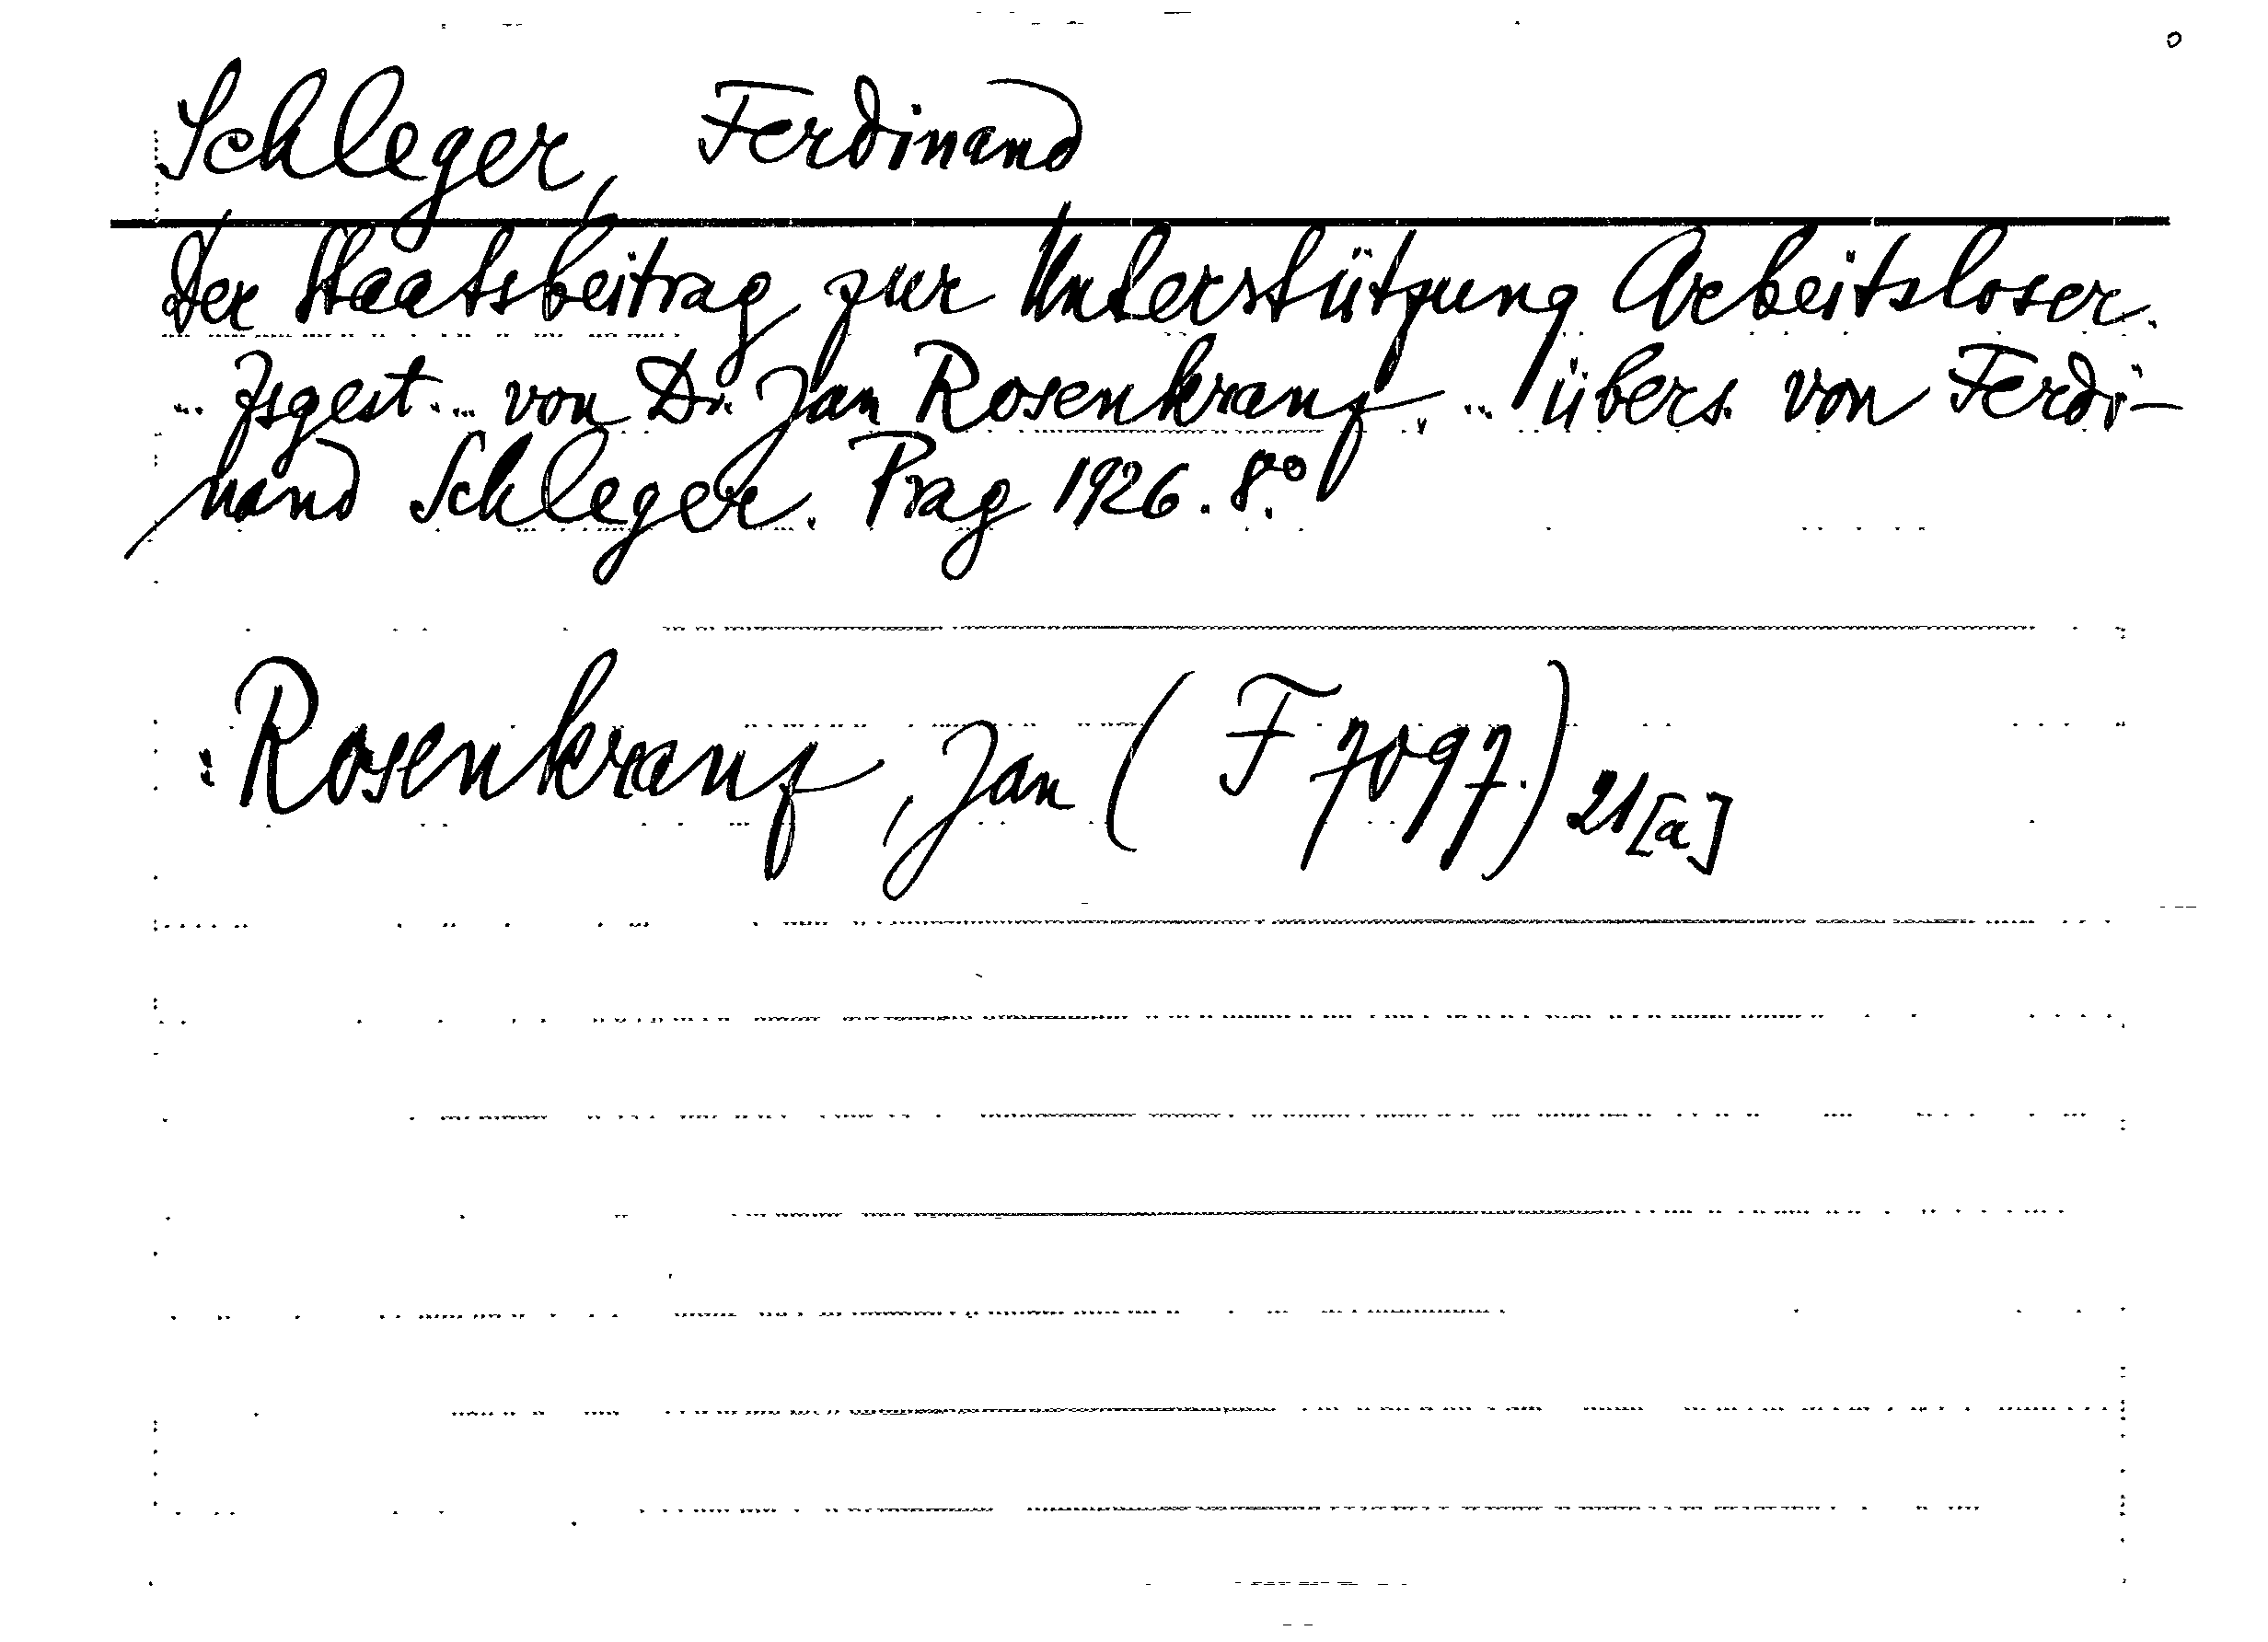 Schleger, Ferdinand
Der Staatsbeitrag zur Unterstützung Arbeitsloser.
... Zsgest. ... von Dr. Jan Rosenkranz ... übers. von Ferdi-
nand Schleger. Prag 1926. 8.°
: Rosenkranz, Jan (F 7097.) 21[a]